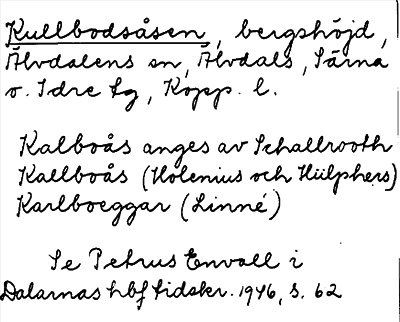 Kullbodsåsen, bergshöjd,
Älvdalens sn, Älvdals, Särna
o. Idre tg, Kopp. l.
Kalboås anges av Schallrooth
Kallboås (Holenius och Hülphers)
Karlboeggar (Linné)
Se Petrus Envall i
Dalarnas hbf tidskr. 1946, s. 62